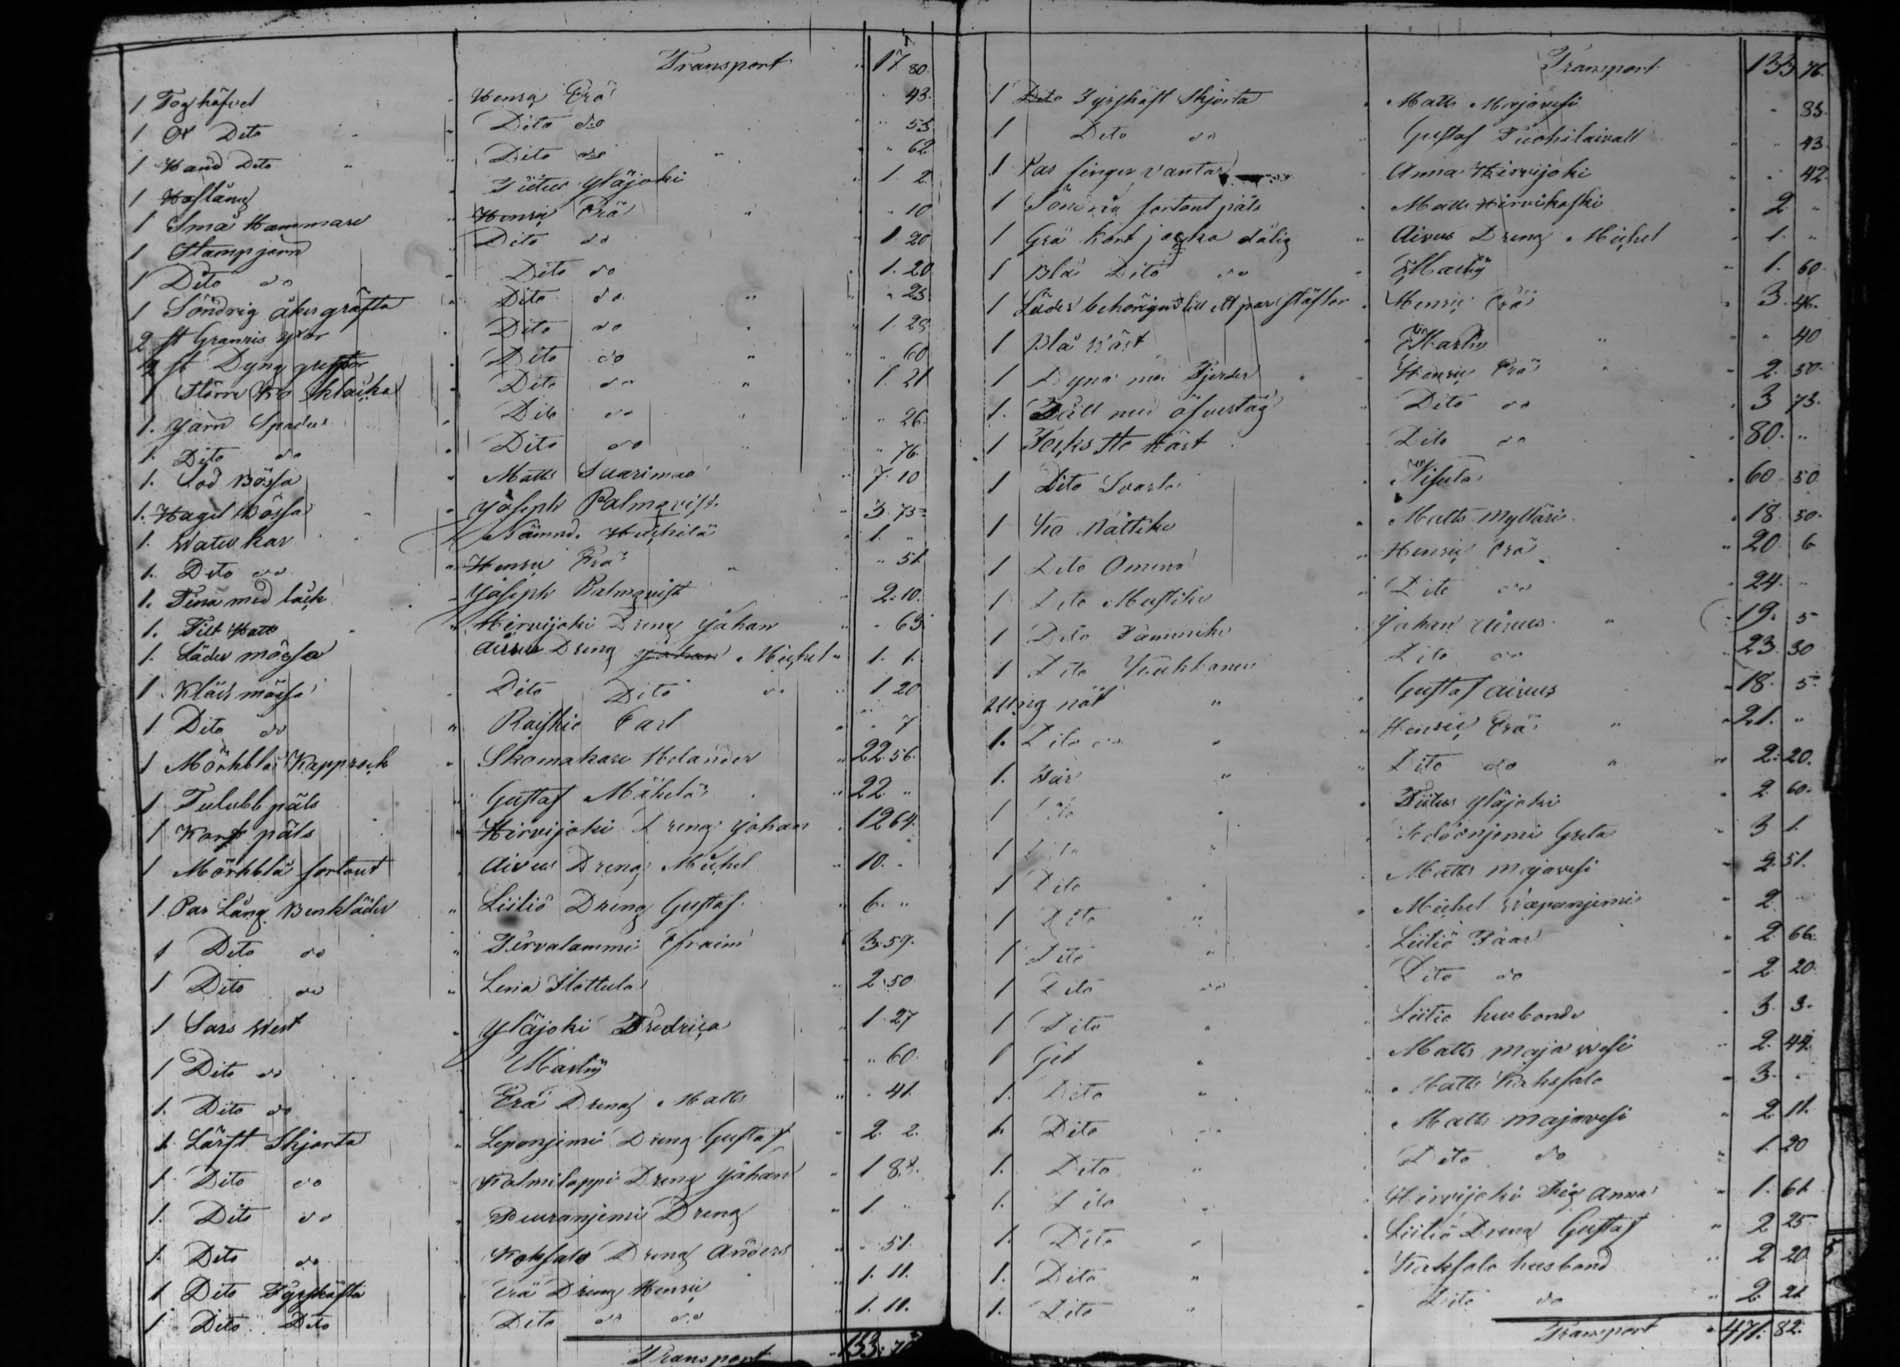 Transport 17 80
1 Toghöfvel Henric Erä 43
1 Ox Dito Dito do 55
1 Hand Dito Dito do 62
1 Hoftång Yläjoki 1 2
1 Små Hammare Henric Erä 10
1 Stampjärn Dito do 1 20
1 Dito do Dito do 1. 20
1 Söndrig åkergräfta Dito do 25
2 st Granris Dito do 1 25
st Dyng Dito do 60
1 Större Ko Dito do 1. 21
1. Järn Spade Dito do 26
1. Dito do Dito do 76
1. Lod Bössa Matts 7 10
1. Hagel Bössa Joseph Palmqvist 3 75
1. Watu kar Nämnd. 1
1. Dito do Henric Erä 51
1. Tina med lock Joseph Palmqvist 2. 10
1. Filt Hatt Hirvijoki Dreng Johan 63
1. Läder mössa Airus Dreng Michel 1. 1.
1. Kläd mössa Dito Dito do 1 20
1 Dito do Carl 7
1 Mörkblå Kapprock Skomakare Helander 22 56
1 Tulubb päls Gustaf Mäkelä 22
1 Kort päls Hirvijoki Dreng Johan 12 64
1 Mörkblå sortout Airus Dreng Michel 10
1. Par Lång Benkläder Liitiö Dreng Gustaf 6
1 Dito do Tervalammi Efraim 3 59
1 Dito do Lena 2 50
1 Sars West Yläjoki Fredrica 1 27
1 Dito do 60
1. Dito do Erä Dreng Matts 41
1. Lärft Skjorta Leponjemi Dreng Gustaf 2. 2.
1. Dito do Kolmilappi Dreng Johan 1 8
1. Dito do Dreng 1
1. Dito do Koksalo Dreng Anders 51
1 Dito Fyrskäfta Erä Dreng Henric 1. 11.
1 Dito Dito Dito do do 1. 11.
Transport 133. 76
Transport 133 76
1 Fyrskäft Skjorta Matts Majavesi 35
1 Dito do Gustaf 43
1 Par finger vantar Anna Hirvijoki 42
1 Söndrig sortout päls Matts Hirvikoski 2
1 Grå kort jacka dålig Airus Dreng Michel 1
1 Blå Dito do 1. 60
1 Läder behörigt till ett par stöflor Henric Erä 3 46
1 Blå Wäst 40
1 Dyna med Fjeder Henric Erä 2. 50
1. Fäll med öfvertåg Dito do 3 75
1 Häst Dito do 80
1 Dito Svarta 60 50
1 Ko Mättike Matts Mylläri 18 50
1 Dito Omena Henric Erä 20 6
1 Dito Mustike Dito do 24
1 Dito Johan Airus 19. 5
1 Dito Dito do 23 30
Ung nöt Gustaf Airus 18 5
1. Dito do Henric Erä 21
1. Får Dito do 2. 20
1 Dito Yläjoki 2 60
1 Dito Greta 3 1
1 Dito Matts Majavesi 2 51
1 Dito Michel 2
1 Dito Liitiö 2 66
1 Dito do Dito do 2 20
1 Dito Liitiö husbonde 3. 3
1 Get Matts Majavesi 2. 44
1. Dito Matts Koksalo 3
1. Dito Matts Majavesi 2 11.
1. Dito Dito do 1 20
1. Dito Hirvijoki Pig Anna 1. 61
1. Dito Liitiö Dreng Gustaf 2 25
1. Dito Koksalo husbond 2 20
1. Dito Dito do 2 21
Transport 471. 82